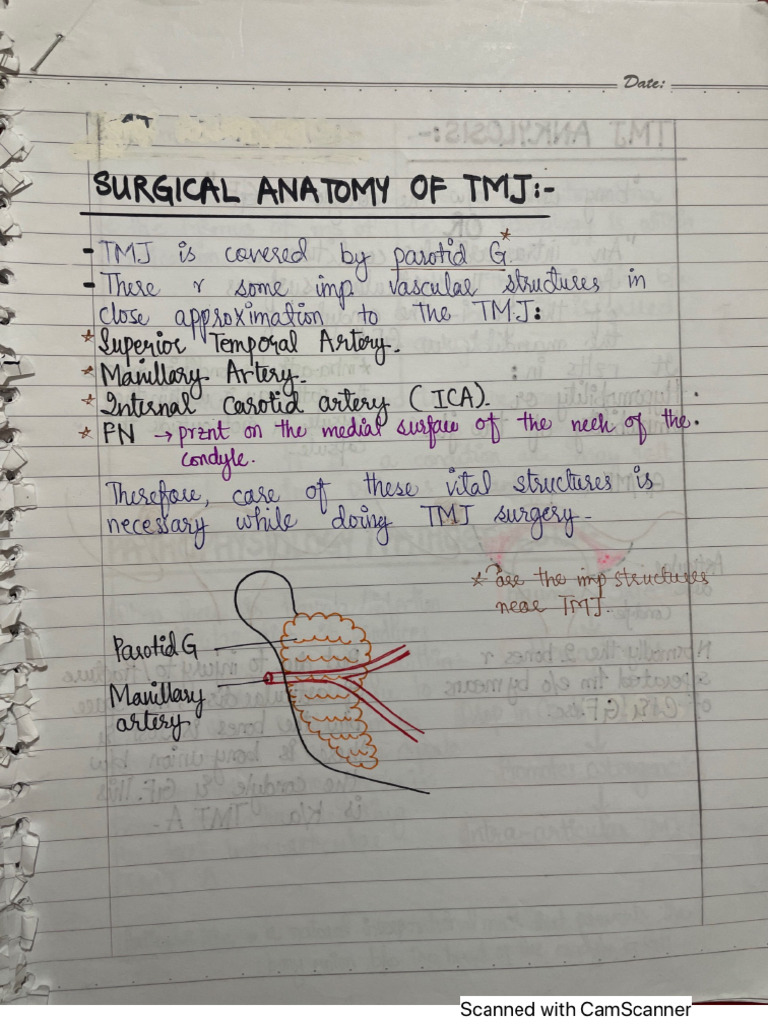 Date:
SURGICAL ANATOMY OF TMJ:-
- TMJ is covered by parotid G*
- There r some imp. vascular structures in
close approximation to the TMJ:
* Superior Temporal Artery.
* Maxillary Artery.
* Internal Carotid artery (ICA).
* FN → prznt on the medial surface of the neck of the
condyle.
Therefore, care of these vital structures is
necessary while doing TMJ surgery.
* are the imp structures
near TMJ.
Parotid G
Maxillary
artery
Scanned with CamScanner